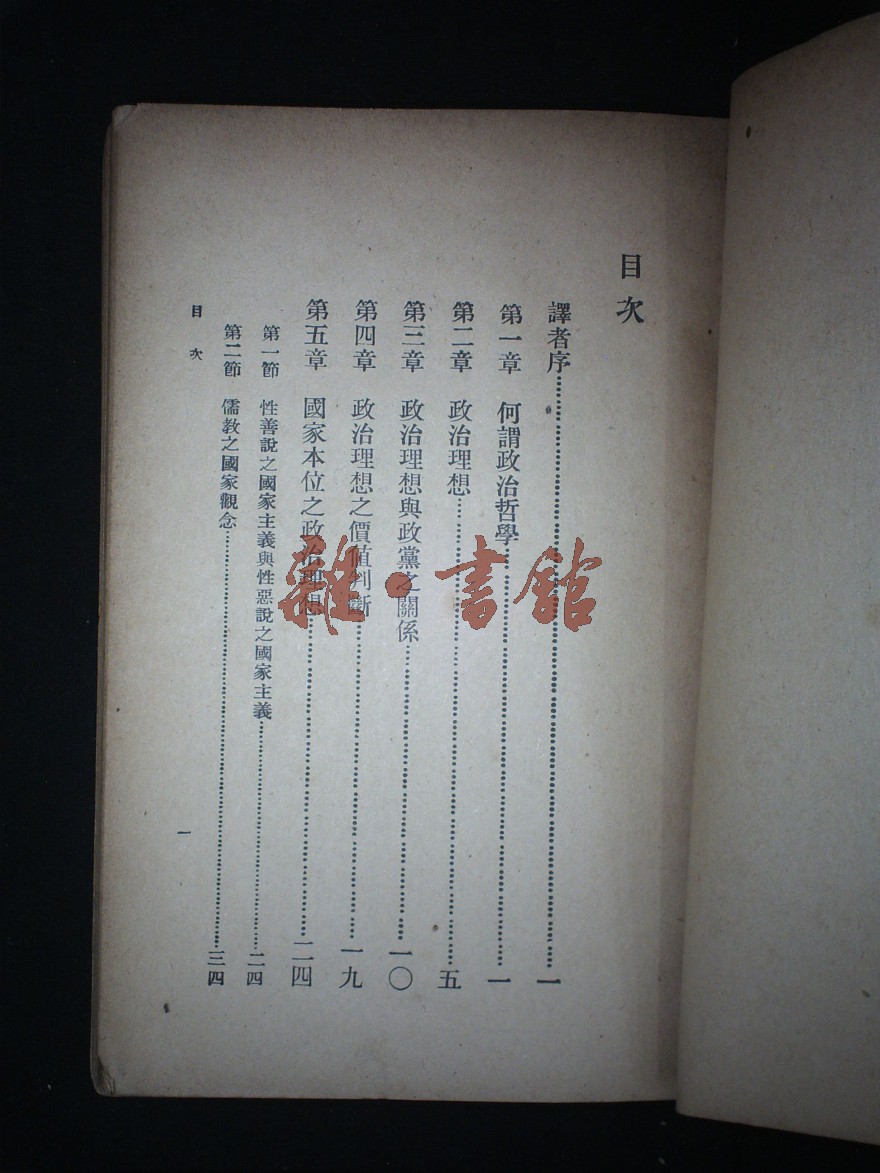 目次
譯者序……一
第一章 何謂政治哲學……一
第二章 政治理想……五
第三章 政治理想與政黨之關係……一〇
第四章 政治理想之價值判斷……一九
第五章 國家本位之政治理想……二四
第一節 性善說之國家主義與性惡說之國家主義……二四
第二節 儒教之國家觀念……三四
目次 一
雜·書館